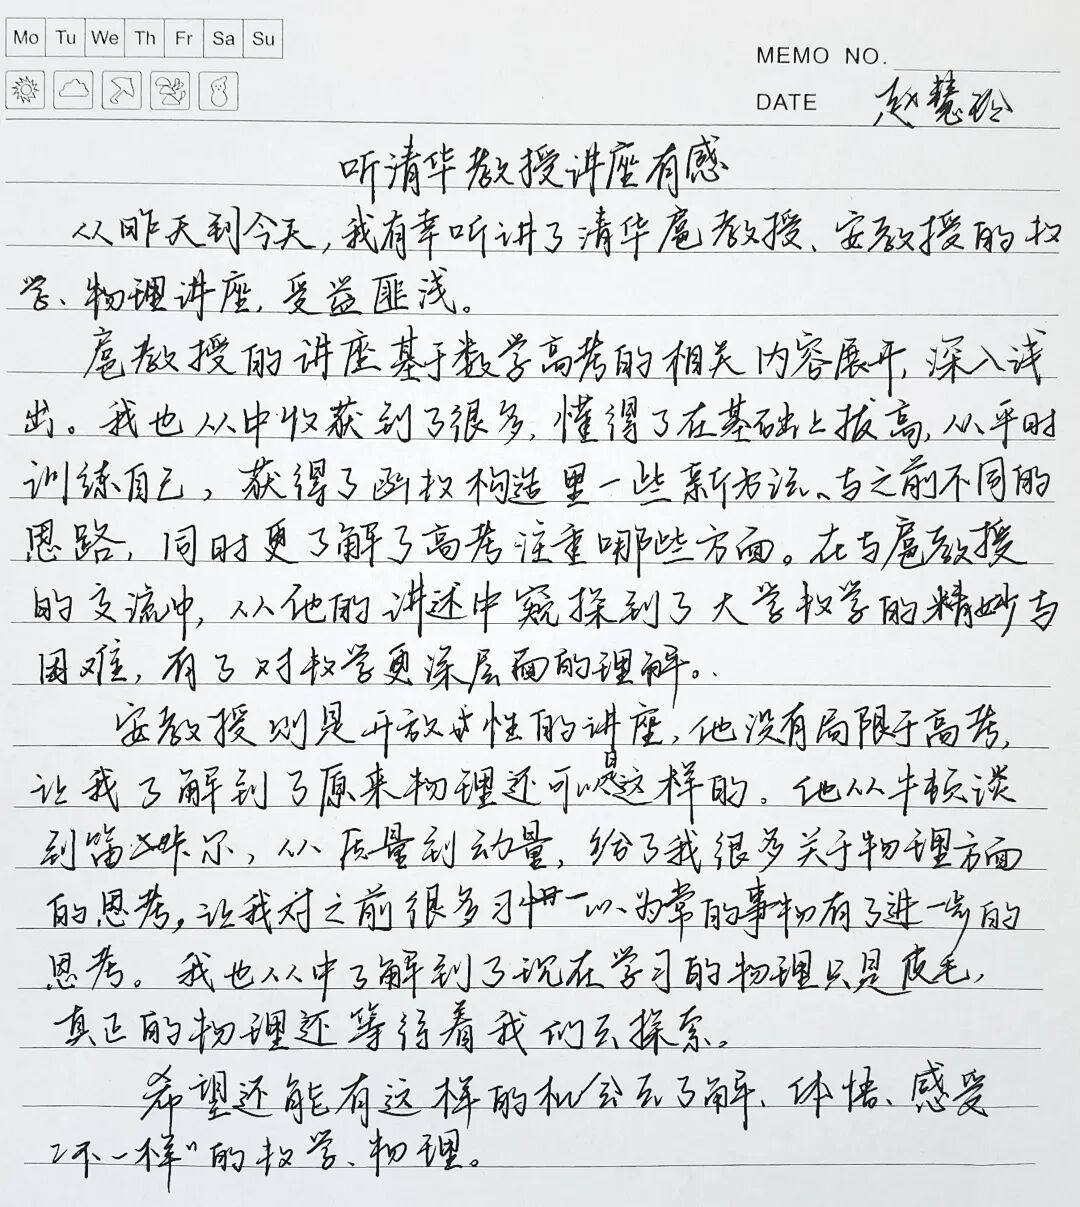 Mo Tu We Th Fr Sa Su
MEMO NO.
DATE 赵慧玲
听清华教授讲座有感
从昨天到今天，我有幸听讲了清华扈教授、安教授的数
学、物理讲座，受益匪浅。
扈教授的讲座基于数学高考的相关内容展开，深入浅
出。我也从中收获到了很多，懂得了在基础上拔高，从平时
训练自己，获得了函数构造里一些新方法、与之前不同的
思路，同时更了解了高考注重哪些方面。在与扈教授
的交流中，从他的讲述中窥探到了大学数学的精妙与
困难，有了对数学更深层面的理解。
安教授则是开放性的讲座，他没有局限于高考，
让我了解到了原来物理还可以是这样的。他从牛顿谈
到笛卡尔，从质量到动量，给了我很多关于物理方面
的思考，让我对之前很多习惯以为常的事物有了进一步的
思考。我也从中了解到了现在学习的物理只是皮毛，
真正的物理还等待着我们去探索。
希望还能有这样的机会去了解、体悟、感受
“不一样”的数学、物理。